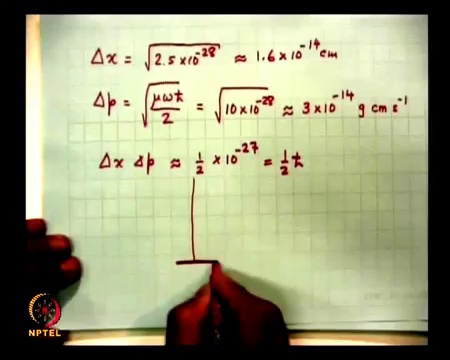 Δx = √2.5×10⁻²⁸ ≈ 1.6×10⁻¹⁴ cm
Δp = √(μωħ/2) = √10×10⁻²⁸ ≈ 3×10⁻¹⁴ g cm s⁻¹
Δx Δp ≈ 1/2 × 10⁻²⁷ = 1/2 ħ
NPTEL